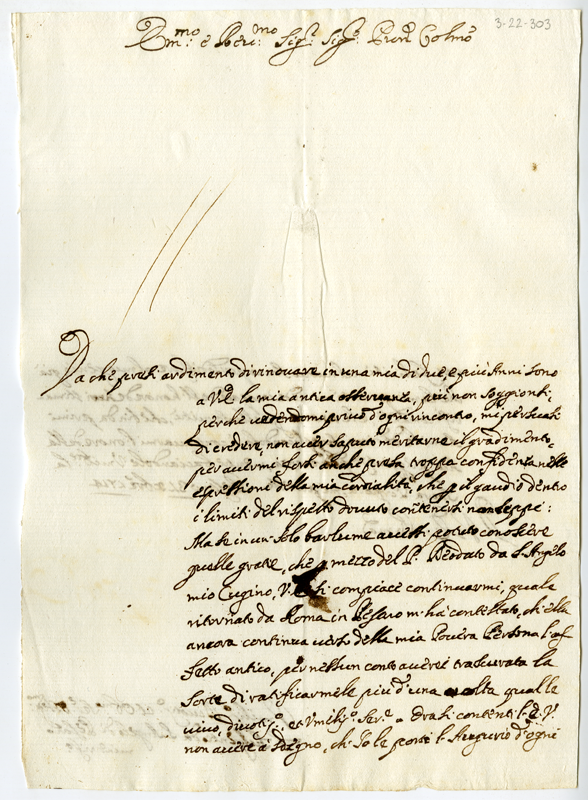 3-22-303
R.mo e Rev.mo Sig.r Sig.r Pron Colmo
Da che presi ardimento di rinovare in una mia di due, e più Anni sono
a V.S. la mia antica osservanza, più non soggionsi,
perche vedendomi privo d'ogni rincontro, mi persuasi
di credere, non aver saputo meritarne il gradimento,
per avermi forsi anche presa troppa confidenza nelle
espressioni della mia cordialità, che p il gaudio dentro
i limiti del rispetto dovuto contenersi non seppe:
Ma se in un solo barlume avessi potuto conoscere
quelle grazie, che p mezzo del P. Deodato da S. Angelo
mio Cugino, si compiace continuarmi, quale
ritornato da Roma in Pesaro m'ha contestato, ch'ella
ancora continua verso della mia Povera Persona l'af
fetto antico, per nessun conto averei trascurata la
sorte di ratificarmele più d'una volta qual le
vivo, divotis.o, et Umilis.o Ser.e a si contenti V.
non avere à sdegno, ch'Io le porti l'Augurio d'ogni